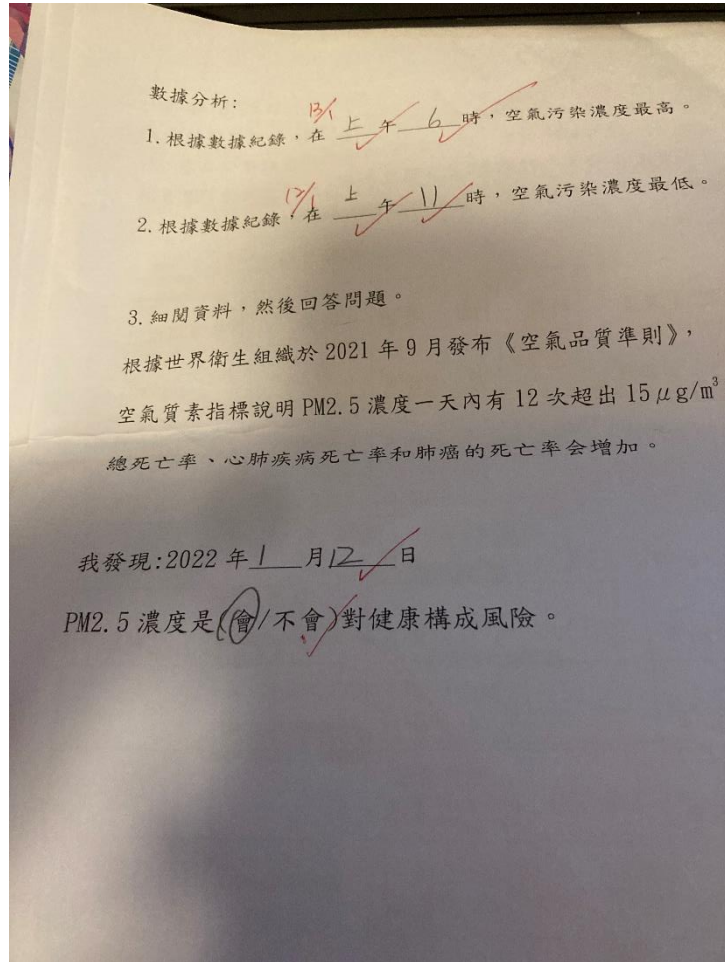 數據分析:
13/1
1. 根據數據紀錄，在 上 午 6 時，空氣污染濃度最高。
12/1
2. 根據數據紀錄，在 上 午 11 時，空氣污染濃度最低。
3. 細閱資料，然後回答問題。
根據世界衛生組織於 2021 年 9 月發布《空氣品質準則》，
空氣質素指標說明 PM2.5 濃度一天內有 12 次超出 15μg/m³
總死亡率、心肺疾病死亡率和肺癌的死亡率会增加。
我發現:2022 年 1 月 12 日
PM2.5 濃度是(會/不會)對健康構成風險。